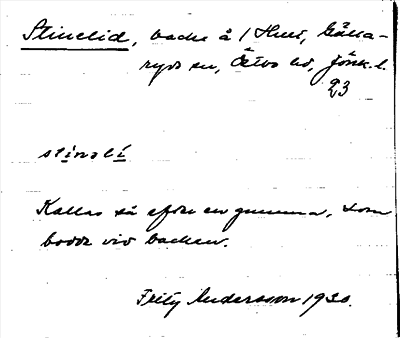 Stinelid, backe å 1 Hult, Gälla-
ryds sn, Östbo hd, Jönk. l.
23
stinəlí
Kallas så efter en gumma, som
bodde vid backen.
Fritz Andersson 1930.